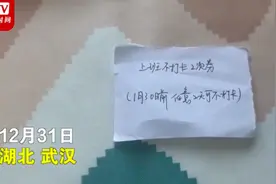 TV
上班不打卡2次券
(1月10日前 任意2天可不打卡)
12月31日
湖北 武汉